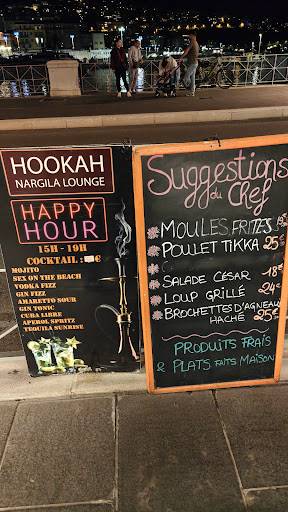 HOOKAH
NARGILA LOUNGE
HAPPY
HOUR
15H - 19H
COCKTAIL : €
MOJITO
SEX ON THE BEACH
VODKA FIZZ
GIN FIZZ
AMARETTO SOUR
GIN TONIC
CUBA LIBRE
APEROL SPRITZ
TEQUILA SUNRISE
Suggestions
du Chef
MOULES FRITES
POULET TIKKA 25
SALADE CÉSAR 18€
LOUP GRILLÉ 24€
BROCHETTES D'AGNEAU
HACHÉ 25€
PRODUITS FRAIS
& PLATS FAITS MAISON